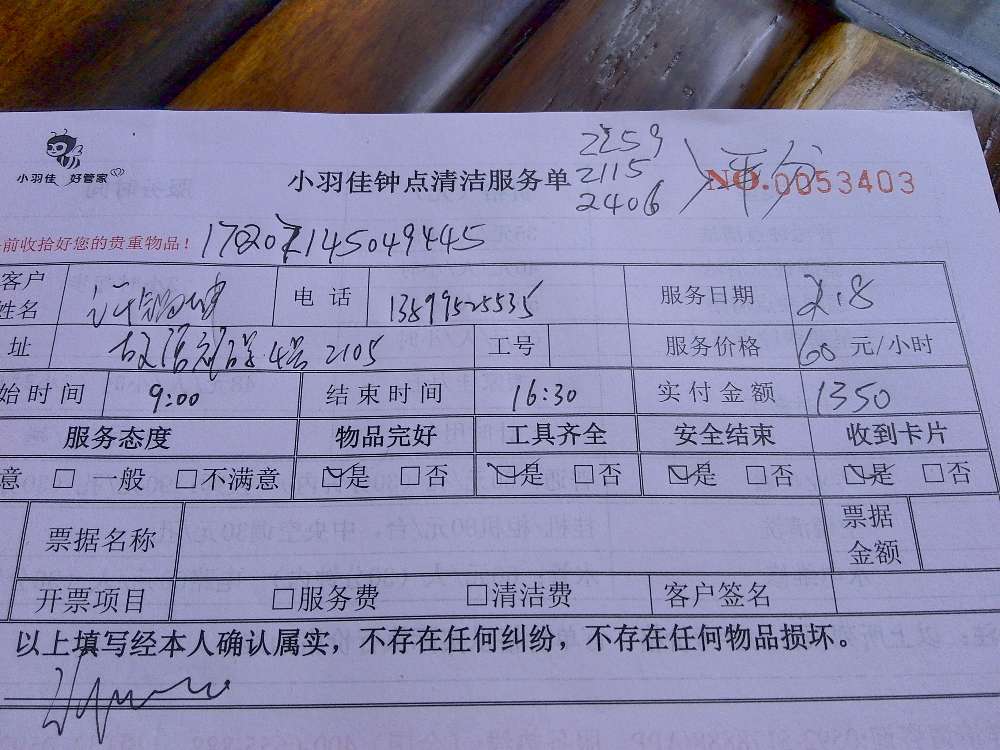 2259
2115
2406
平分
小羽佳 好管家
小羽佳钟点清洁服务单
NO.0053403
前收拾好您的贵重物品！
客户姓名
电话 13899525535
服务日期 2.8
址 4号 2105
工号
服务价格 60 元/小时
始时间 9:00 结束时间 16:30 实付金额 1350
服务态度 物品完好 工具齐全 安全结束 收到卡片
意 □一般 □不满意 ☑是 □否 ☑是 □否 ☑是 □否 ☑是 □否
票据名称 票据金额
开票项目 □服务费 □清洁费 客户签名
以上填写经本人确认属实，不存在任何纠纷，不存在任何物品损坏。